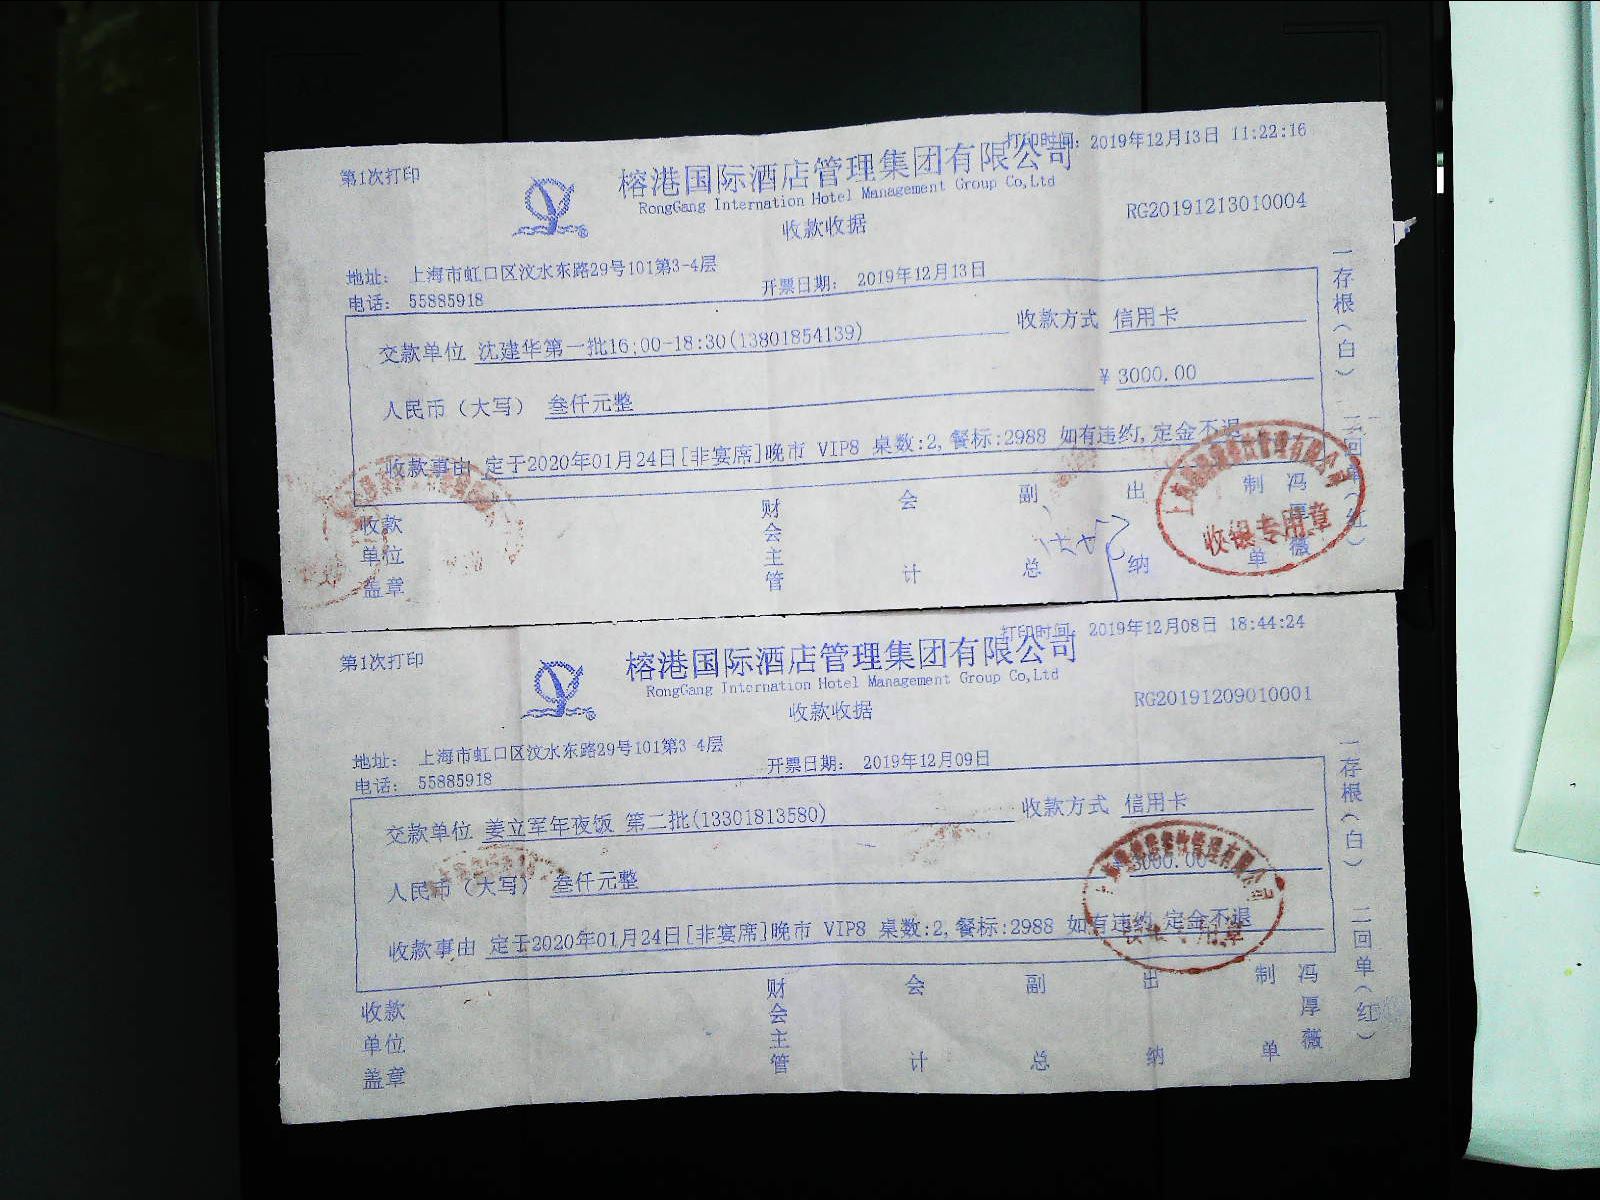 第1次打印
打印时间: 2019年12月13日 11:22:16
榕港国际酒店管理集团有限公司
RongGang Internation Hotel Management Group Co,Ltd
收款收据
RG20191213010004
地址: 上海市虹口区汶水东路29号101第3-4层
电话: 55885918
开票日期: 2019年12月13日
交款单位 沈建华第一批16:00-18:30(13801854139)
收款方式 信用卡
人民币（大写） 叁仟元整
¥ 3000.00
收款事由 定于2020年01月24日[非宴席]晚市 VIP8 桌数:2,餐标:2988 如有违约,定金不退
收款单位盖章
财会主管
会计
副总
出纳
制单
冯厚薇
一存根(白)
二回单(红)
收银专用章
第1次打印
打印时间: 2019年12月08日 18:44:24
榕港国际酒店管理集团有限公司
RongGang Internation Hotel Management Group Co,Ltd
收款收据
RG20191209010001
地址: 上海市虹口区汶水东路29号101第3-4层
电话: 55885918
开票日期: 2019年12月09日
交款单位 姜立军年夜饭 第二批(13301813580)
收款方式 信用卡
人民币（大写） 叁仟元整
3000.00
收款事由 定于2020年01月24日[非宴席]晚市 VIP8 桌数:2,餐标:2988 如有违约,定金不退
收款单位盖章
财会主管
会计
副总
出纳
制单
冯厚薇
一存根(白)
二回单(红)